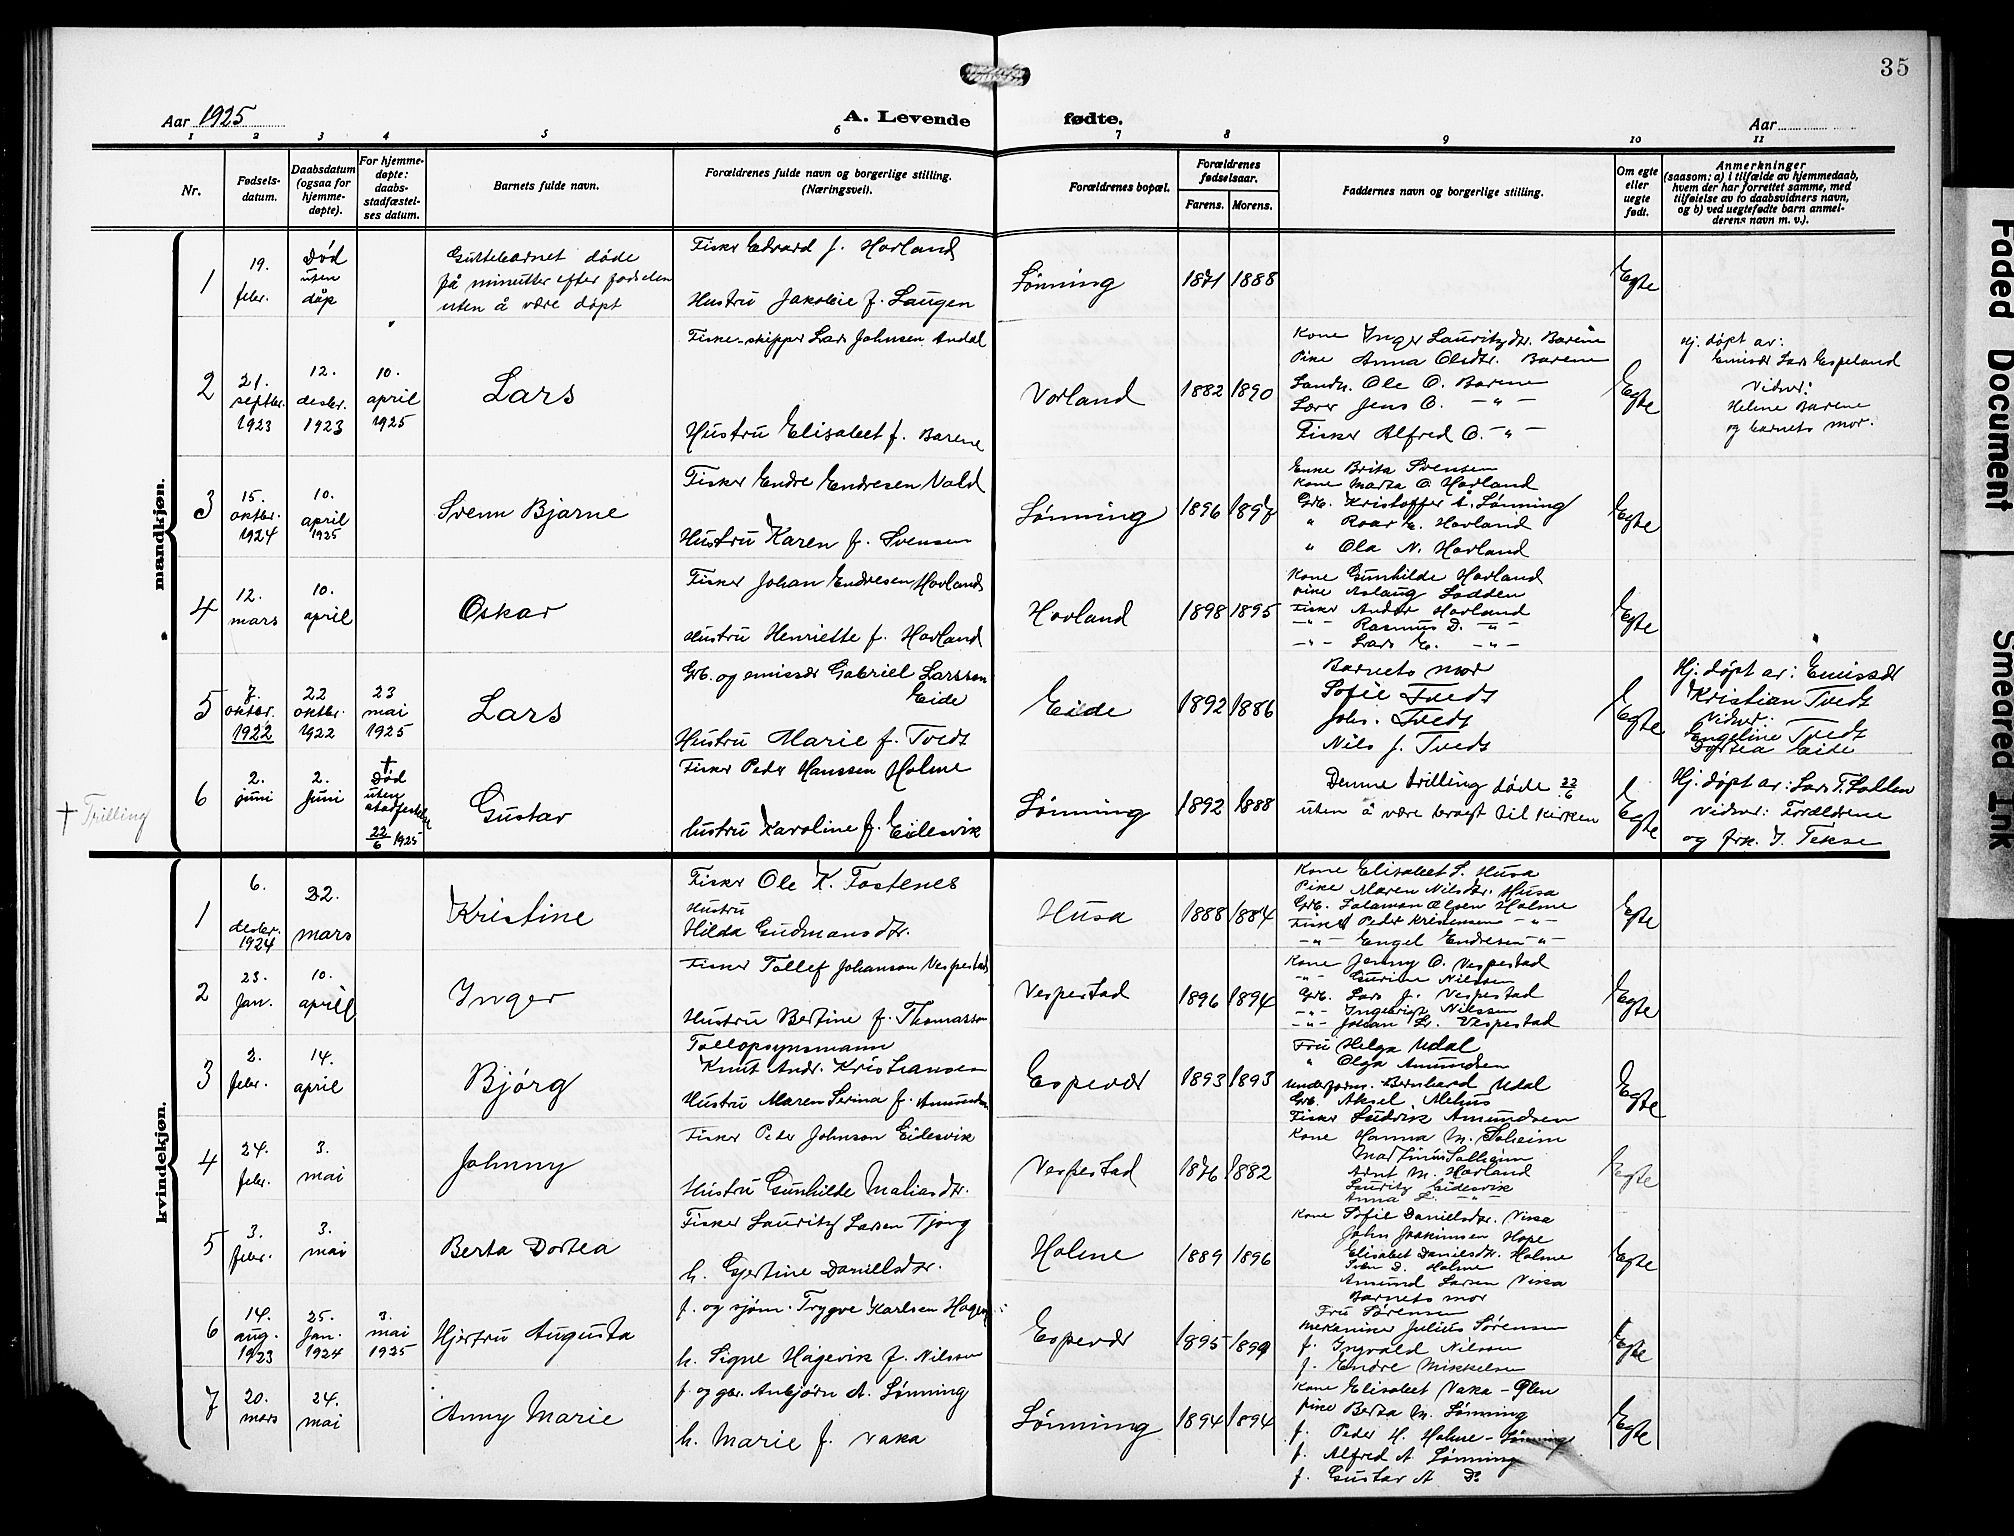 35
Aar 1925
A. Levende fødte.
Aar
1 2 3 4 5 6 7 8 9 10 11
Nr.
Fødsels-
datum.
Daabsdatum
(ogsaa for
hjemme-
døpte).
For hjemme-
døpte:
daabs-
stadfæstel-
ses datum.
Barnets fulde navn.
Forældrenes fulde navn og borgerlige stilling.
(Næringsvei).
Forældrenes bopæl.
Forældrenes
fødselsaar.
Farens. Morens.
Faddernes navn og borgerlige stilling.
Om egte
eller
uegte
født.
Anmerkninger
(saasom: a) i tilfælde av hjemmedaab,
hvem der har forrettet samme, med
tilføielse av to daabsvidners navn,
og b) ved uegtefødte barn anmel-
derens navn m. v.).
mandkjøn.
1
19.
febr.
Død
uten
dåp
Guttebarnet døde
få minutter efter fødselen
uten å være døpt
Fisker Edvard J. Hovland
Hustru Jakobie f. Laugen
Lønning
1871 1888
Egte
2
21.
septbr.
1923
12.
desbr.
1923
10.
april
1925
Lars
Fiske-skipper Lars Johnsen Andal
Hustru Elisabet f. Barene
Vorland
1882 1890
Kone Inger Lauritzdtr. Barene
Pike Anna Olsdtr. Barene
Landh. Ole O. Barene
Lærer Jens O. -"-
Fisker Alfred O. -"-
Egte
Hj. døpt av:
Emissær Lars Espeland
Vidner:
Helene Barene
og barnets mor.
3
15.
oktbr.
1924
10.
april
1925
Svenn Bjarne
Fisker Endre Endresen Vold
Hustru Karen f. Svensen
Lønning
1896 1897
Enke Brita Svensen
Kone Marta O. Hovland
Grb. Kristoffer Å. Lønning
" Roar E. Hovland
" Ola N. Hovland
Egte
4
12.
mars
10.
april
Oskar
Fisker Johan Endresen Hovland
Hustru Henriette f. Hovland
Hovland
1898 1895
Kone Gunhilde Hovland
Pike Aslaug Lodden
Fisker Andor Hovland
-"- Rasmus D. -"-
-"- Lars E. -"-
Egte
5
7.
oktbr.
1922
22
oktbr.
1922
23
mai
1925
Lars
Grb. og emissær Gabriel Larssen
Eide
Hustru Marie f. Tvedt
Eide
1892 1886
Barnets mor
Sofie Tvedt
Johs. Tvedt
Nils J. Tvedt
Egte
Hj. døpt av: Emissær
Kristian Tvedt
Vidner:
Engeline Tvedt
Dortea Eide
† Trilling
6
2.
juni
2.
juni
†
Død
uten
stadfestelse
22/6 1925
Gustav
Fisker Peder Hanssen Holme
hustru Karoline f. Eidesvik
Lønning
1892 1888
Denne trilling døde 22/6
uten å være bragt til kirken
Egte
Hj. døpt av: Lars T. Hollen
Vidner: Foreldrene
og frk. I. Tekse
kvindekjøn.
1
6.
desbr.
1924
22.
mars
Kristine
Fisker Ole K. Tostenes
Hustru
Hilda Gudmansdtr.
Husa
1888 1884
Kone Elisabet L. Husa
Pike Maren Nilsdtr. Husa
Grb. Salamon Olsen Holme
Fisker Peder Kristensen -"-
-"- Engel Endresen -"-
Egte
2
23.
Jan.
10.
april
Inger
Fisker Tollef Johanson Vespestad
Hustru Bertine f. Thomassen
Vespestad
1896 1894
Kone Jenny O. Vespestad
-"- Gurine Nilssen
Grb. Lars J. Vespestad
-"- Ingebrigt Nilssen
-"- Johan L. Vespestad
Egte
3
2.
febr.
14.
april
Bjørg
Tollopsynsmann
Knut Andr. Kristiansen
Hustru Maren Serina f. Amundsen
Espevær
1893 1893
Fru Helga Udal
" Olga Amundsen
Underform. Bernhard Udal
Grb. Aksel Mehus
Fisker Ludvik Amundsen
Egte
4
24.
febr.
3.
mai
Johnny
Fisker Peder Johnson Eidesvik
Hustru Gunhilde Maliasdtr.
Vespestad
1876 1882
Kone Hanna M. Solheim
Martinus Solheim
Arnt M. Hovland
Lauritz Eidesvik
Anna L. -"-
Egte
5
3.
febr.
3.
mai
Berta Dortea
Fisker Lauritz Larsen Tjong
h. Gjertine Danielsdtr.
Holme
1889 1896
Kone Sofie Danielsdtr. Vika
John Joakimsen Hope
Elisabet Danielsdtr. Holme
Peder D. Holme
Amund Larsen Vika
Barnets mor
Egte
6
14.
aug.
1923
25.
Jan.
1924
3.
mai
1925
Hjertru Augusta
f. og sjøm. Trygve Karlsen Hagen
h. Signe Hagevik f. Nilsson
Espevær
1895 1899
Fru Sørensen
Mekaniker Julius Sørensen
f. Ingvald Nilsson
f. Endre Mikkelsen
Egte
7
20.
mars
24.
mai
Anny Marie
f. og gbr. Anbjørn A. Lønning
h. Marie f. Vaka
Lønning
1894 1894
Kone Elisabet Vaka-Glen
Pike Berta M. Lønning
f. Peder H. Holme-Lønning
f. Alfred A Lønning
f. Gustav A Do
Egte
Faded Document
Smeared Ink